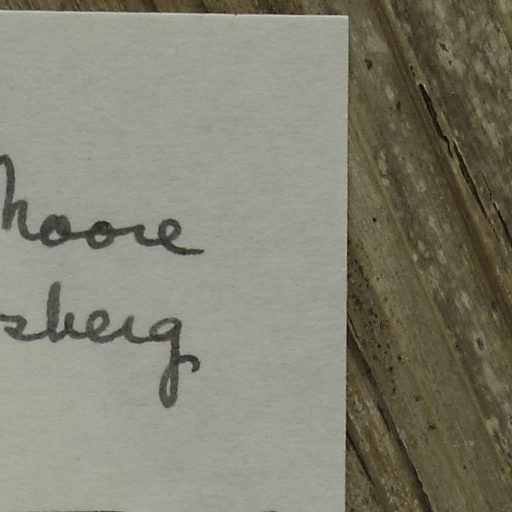 Moore
sberg